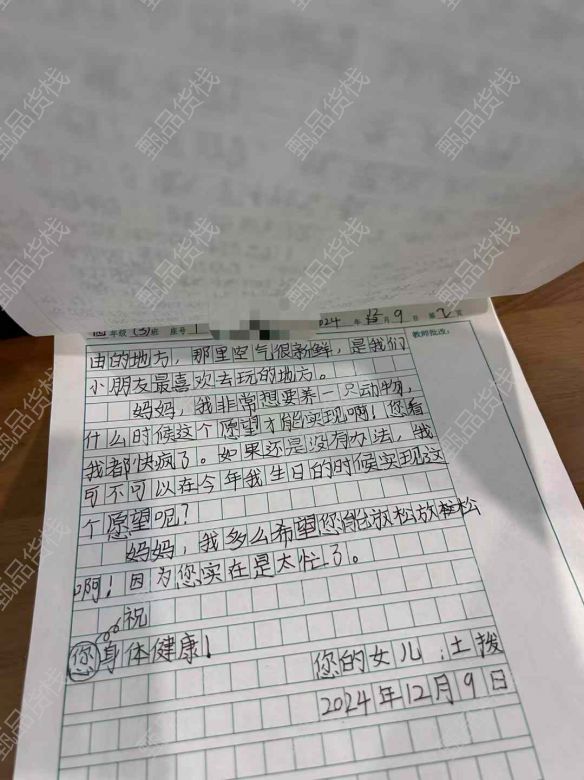 四年级 (3)班 座号 1 2024 年 12 月 9 日 第 2 页
教师批改:
由的地方，那里空气很新鲜，是我们
小朋友最喜欢去玩的地方。
妈妈，我非常想要养一只动物，
什么时候这个愿望才能实现啊！您看
我都快疯了。如果还是没有办法，我
可不可以在今年我生日的时候实现这
个愿望呢？
妈妈，我多么希望您能放松放松
啊！因为您实在是太忙了。
祝
您身体健康！
您的女儿：土拨
2024年12月9日
甄品货栈